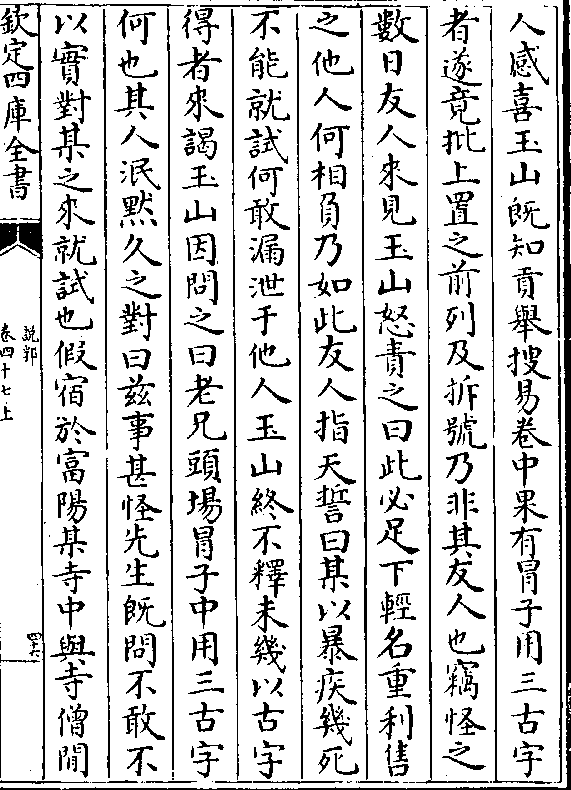 人感喜玉山既知貢舉搜易卷中果有冐子用三古字
者遂竟批上置之前列及拆號乃非其友人也竊怪之
數日友人來見玉山怒責之曰此必足下輕名重利售
之他人何相負乃如此友人指天誓曰某以暴疾幾死
不能就試何敢漏泄于他人玉山終不釋未幾以古字
得者來謁玉山因問之曰老兄頭場冐子中用三古字
何也其人泯默久之對曰兹事甚怪先生既問不敢不
以實對某之來就試也假宿於富陽某寺中與寺僧閒
欽定四庫全書
說郛
卷四十七上
四六